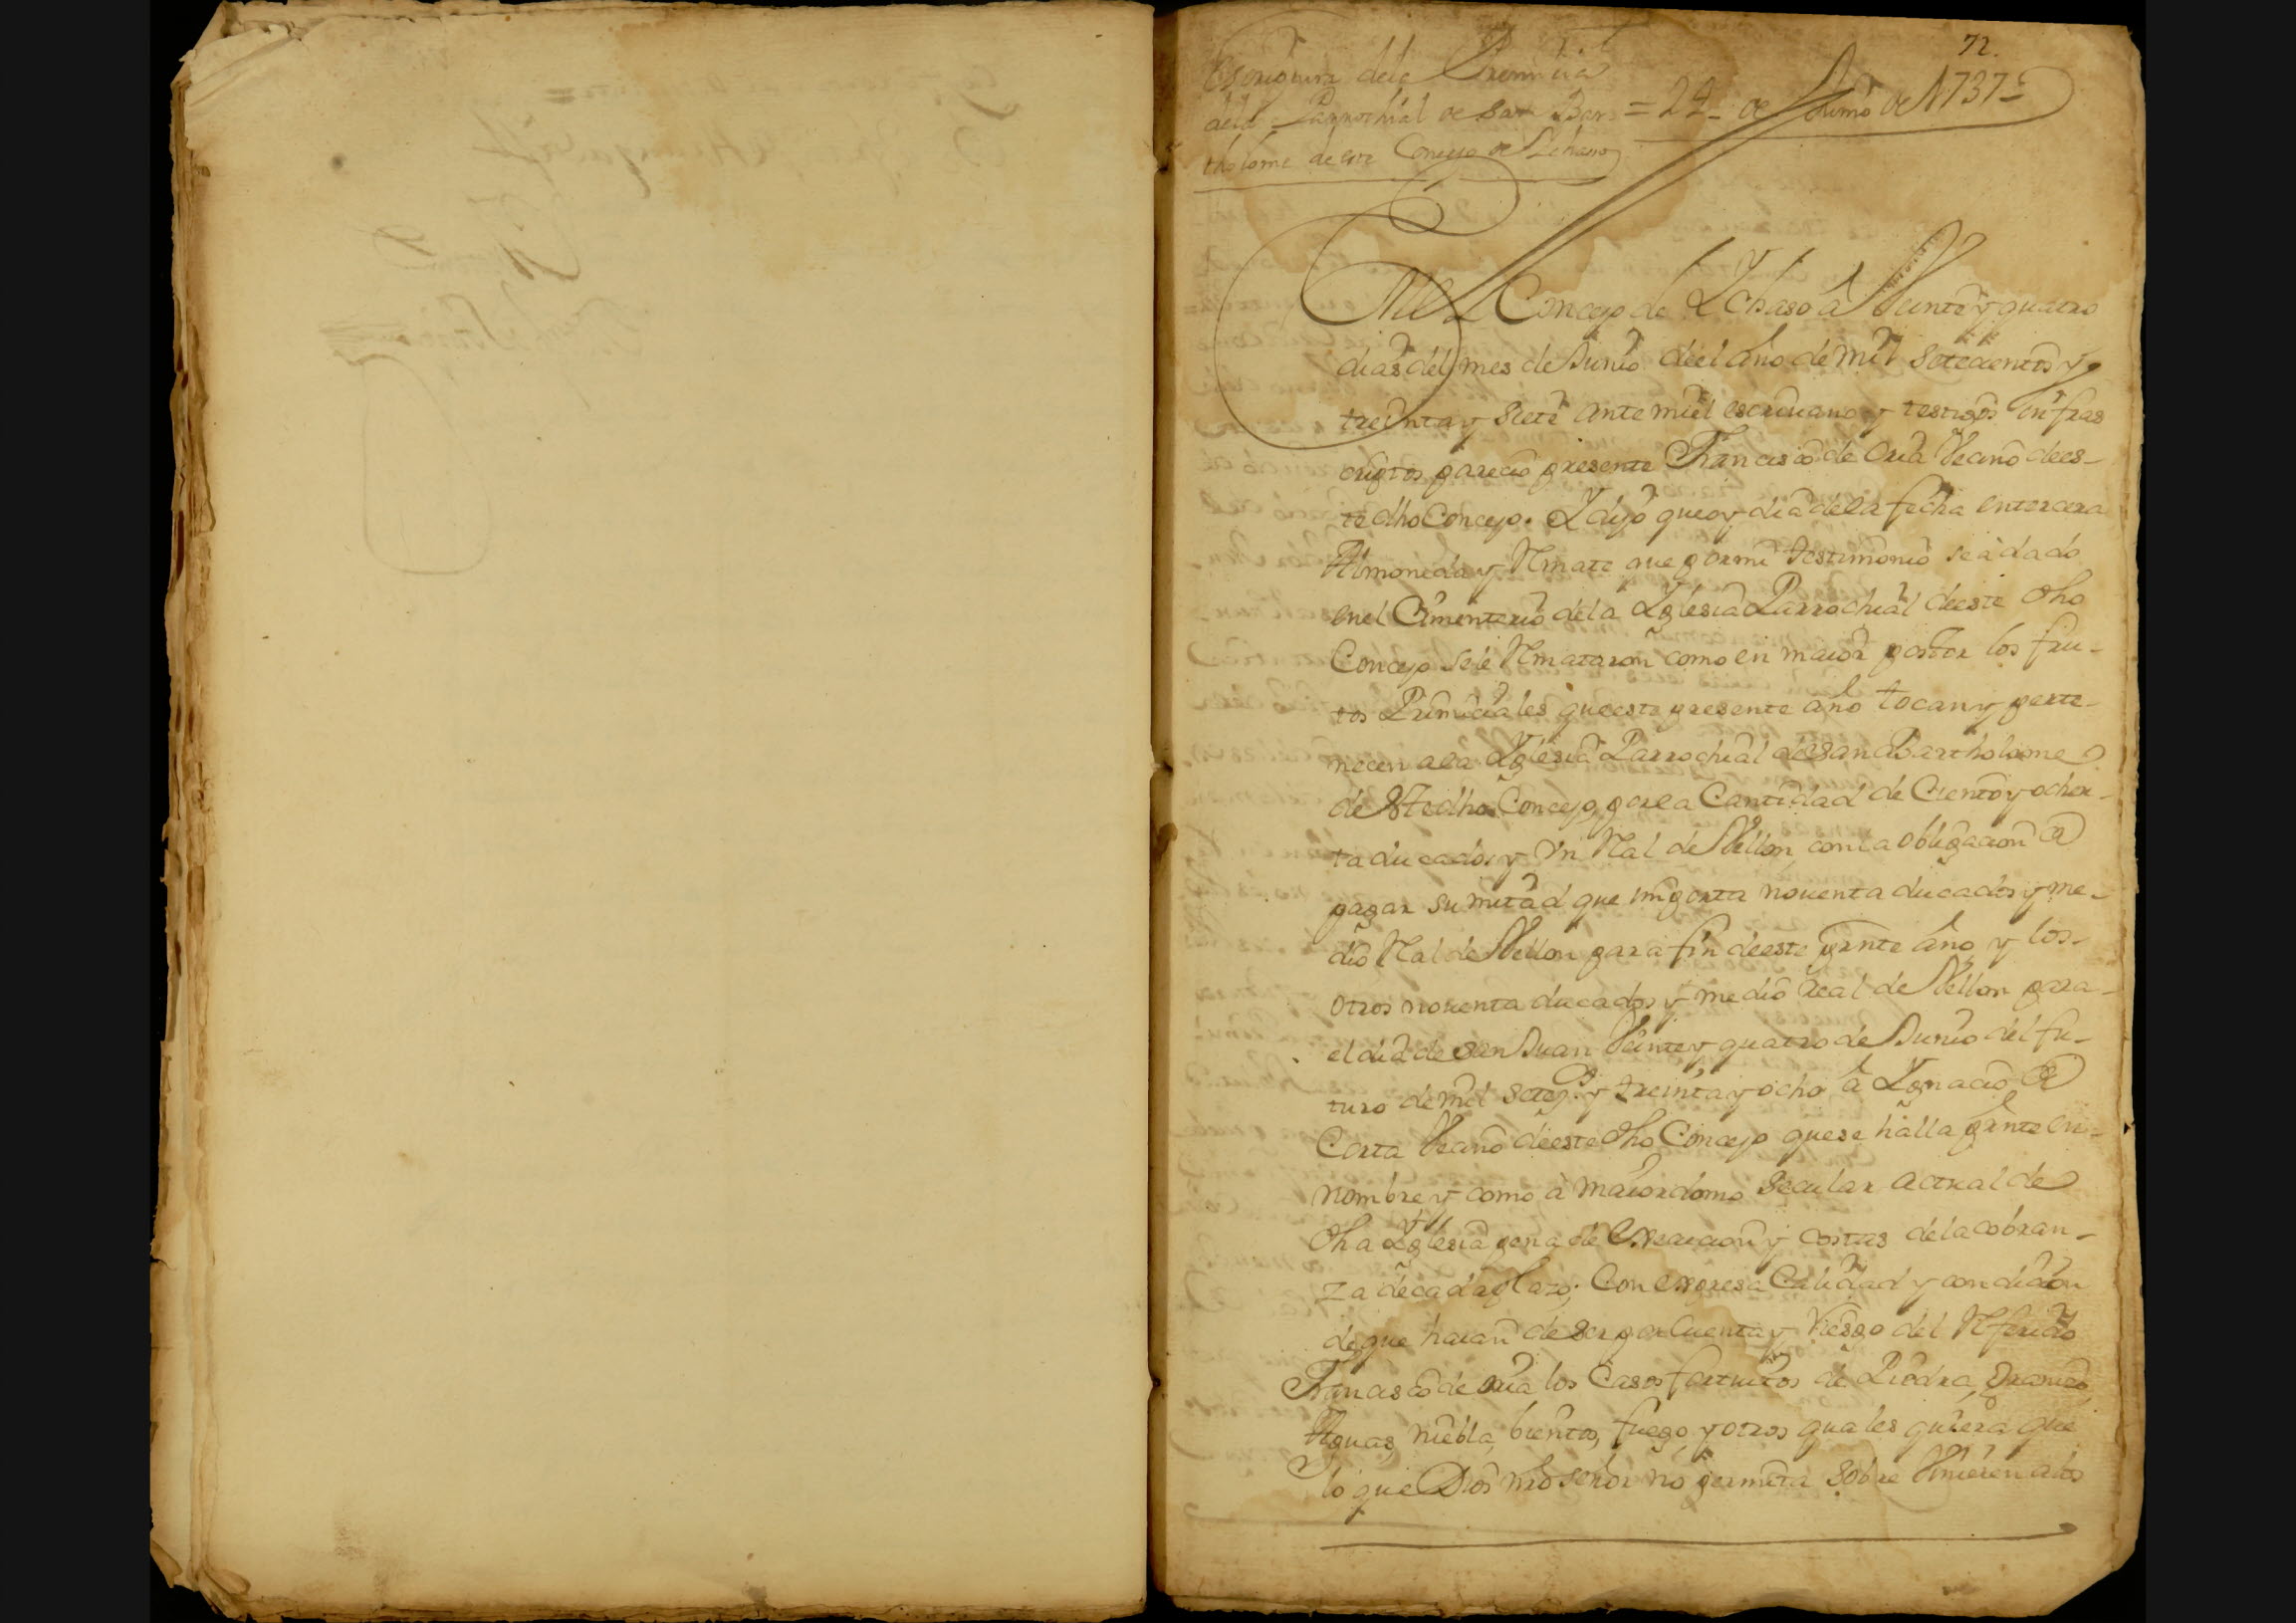 72.
Escriptura dela Primicia
dela Parrochial de San Bar = 24 de Junio de 1737 =
tholome de este Concejo de Ychaso
En el Concejo de Ychaso â Veinte y quatro
dias del mes de Junio deel año de mil setecientos y
treinta y siete ante mi el escriuano y testigos infras
criptos parecio presente Francisco de Oria Vecino de es-
te dho Concejo. Y dijo que oy dia de la fecha en tercera
Almoneda y Rmate que por mi testimonio se à dado
en el Cimenterio de la Yglesia Parrochial de este dho
Concejo se le Rmataron como en maior postor los fru-
tos Primiciales que este presente año tocan y perte-
necen a la Yglesia Parrochial de San Bartholome
de Este dho Concejo, por la Cantidad de Ciento y ochen-
ta ducados y Vn Real de Vellon, con la obligacion de
pagar su mitad que importa nouenta ducados y me-
dio Real de Vellon para fin de este prnte año, y los
otros nouenta ducados y medio Real de Vellon para
el dia de San Juan Veinte y quatro de Junio del fu-
turo de mil setez.s y treinta y ocho â Ygnacio de
Corta Vecino de este dho Concejo que se halla prnte en
nombre y como à maiordomo Secular actual de
dha Yglesia pena de Execucion y costas de la cobran-
za de cada plazo; Con expresa Calidad y condicion
de que haian de ser por Cuenta y Riesgo del Rferido
Francisco de Oria los Casos fortuitos de Piedra, Granizo,
Aguas, niebla, bientos, fuego, y otros quales quiera que
lo que Dios nro señor no permita sobre Vinieren a los